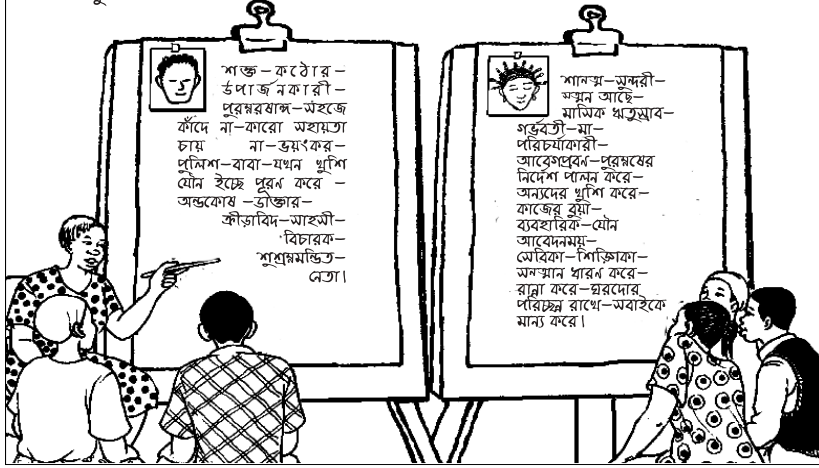 শক্ত-কঠোর-
উপার্জনকারী-
পুরম্নরষাঙ্গ-সহজে
কাঁদে না-কারো সহায়তা
চায় না-ভয়ংকর-
পুলিশ-বাবা-যখন খুশি
যৌন ইচ্ছে পূরণ করে -
অন্ডকোষ -ডাক্তার-
ক্রীড়াবিদ-সাহসী-
বিচারক-
শুশ্রম্নমন্ডিত-
নেতা।
শানত্ম-সুন্দরী-
সত্মন আছে-
মাসিক ঋতুস্রাব-
গর্ভবতী-মা-
পরিচর্যাকারী-
আবেগপ্রবণ-পুরম্নষের
নির্দেশ পালন করে-
অন্যদের খুশি করে-
কাজের বুয়া-
ব্যবহারিক-যৌন
আবেদনময়-
সেবিকা-শিক্ষিকা-
সনত্মান ধারণ করে-
রান্না করে-ঘরদোর
পরিচ্ছন্ন রাখে-সবাইকে
মান্য করে।